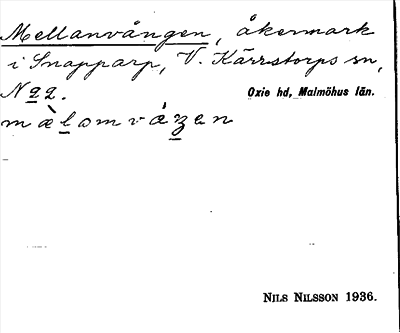 Mellanvången, åkermark
i Snapparp, V. Kärrstorps sn,
N 22. Oxie hd, Malmöhus län.
mèlomvázen
NILS NILSSON 1936.